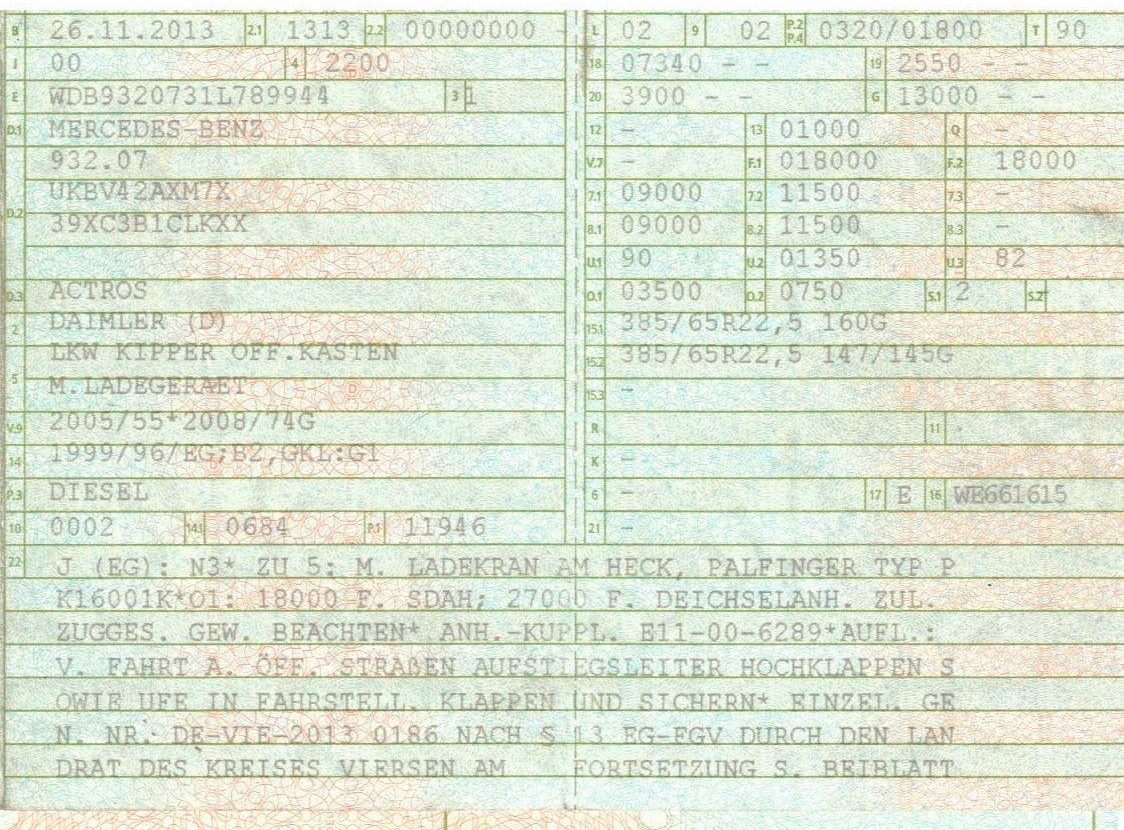 B 26.11.2013 2.1 1313 2.2 00000000 -
J 00 4 2200
E WDB9320731L789944 3 1
D.1 MERCEDES-BENZ
932.07
UKBV42AXM7X
D.2 39XC3B1CLKXX
D.3 ACTROS
2 DAIMLER (D)
LKW KIPPER OFF.KASTEN
5 M.LADEGERAET
V.9 2005/55*2008/74G
14 1999/96/EG;B2,GKL:G1
P.3 DIESEL
10 0002 14.1 0684 P.1 11946
L 02 9 02 P.2 P.4 0320/01800 T 90
18 07340 - - 19 2550 - -
20 3900 - - G 13000 - -
12 - 13 01000 Q -
V.7 - F.1 018000 F.2 18000
7.1 09000 7.2 11500 7.3 -
8.1 09000 8.2 11500 8.3 -
U.1 90 U.2 01350 U.3 82
O.1 03500 O.2 0750 S.1 2 S.2
15.1 385/65R22,5 160G
15.2 385/65R22,5 147/145G
15.3 -
R 11
K -
6 - 17 E 16 WE661615
21 -
22 J (EG): N3* ZU 5: M. LADEKRAN AM HECK, PALFINGER TYP P
K16001K*O1: 18000 F. SDAH; 27000 F. DEICHSELANH. ZUL.
ZUGGES. GEW. BEACHTEN* ANH.-KUPPL. E11-00-6289*AUFL.:
V. FAHRT A. ÖFF. STRAßEN AUFSTIEGSLEITER HOCHKLAPPEN S
OWIE UFE IN FAHRSTELL. KLAPPEN UND SICHERN* EINZEL. GE
N. NR. DE-VIE-2013 0186 NACH § 13 EG-FGV DURCH DEN LAN
DRAT DES KREISES VIERSEN AM FORTSETZUNG S. BEIBLATT